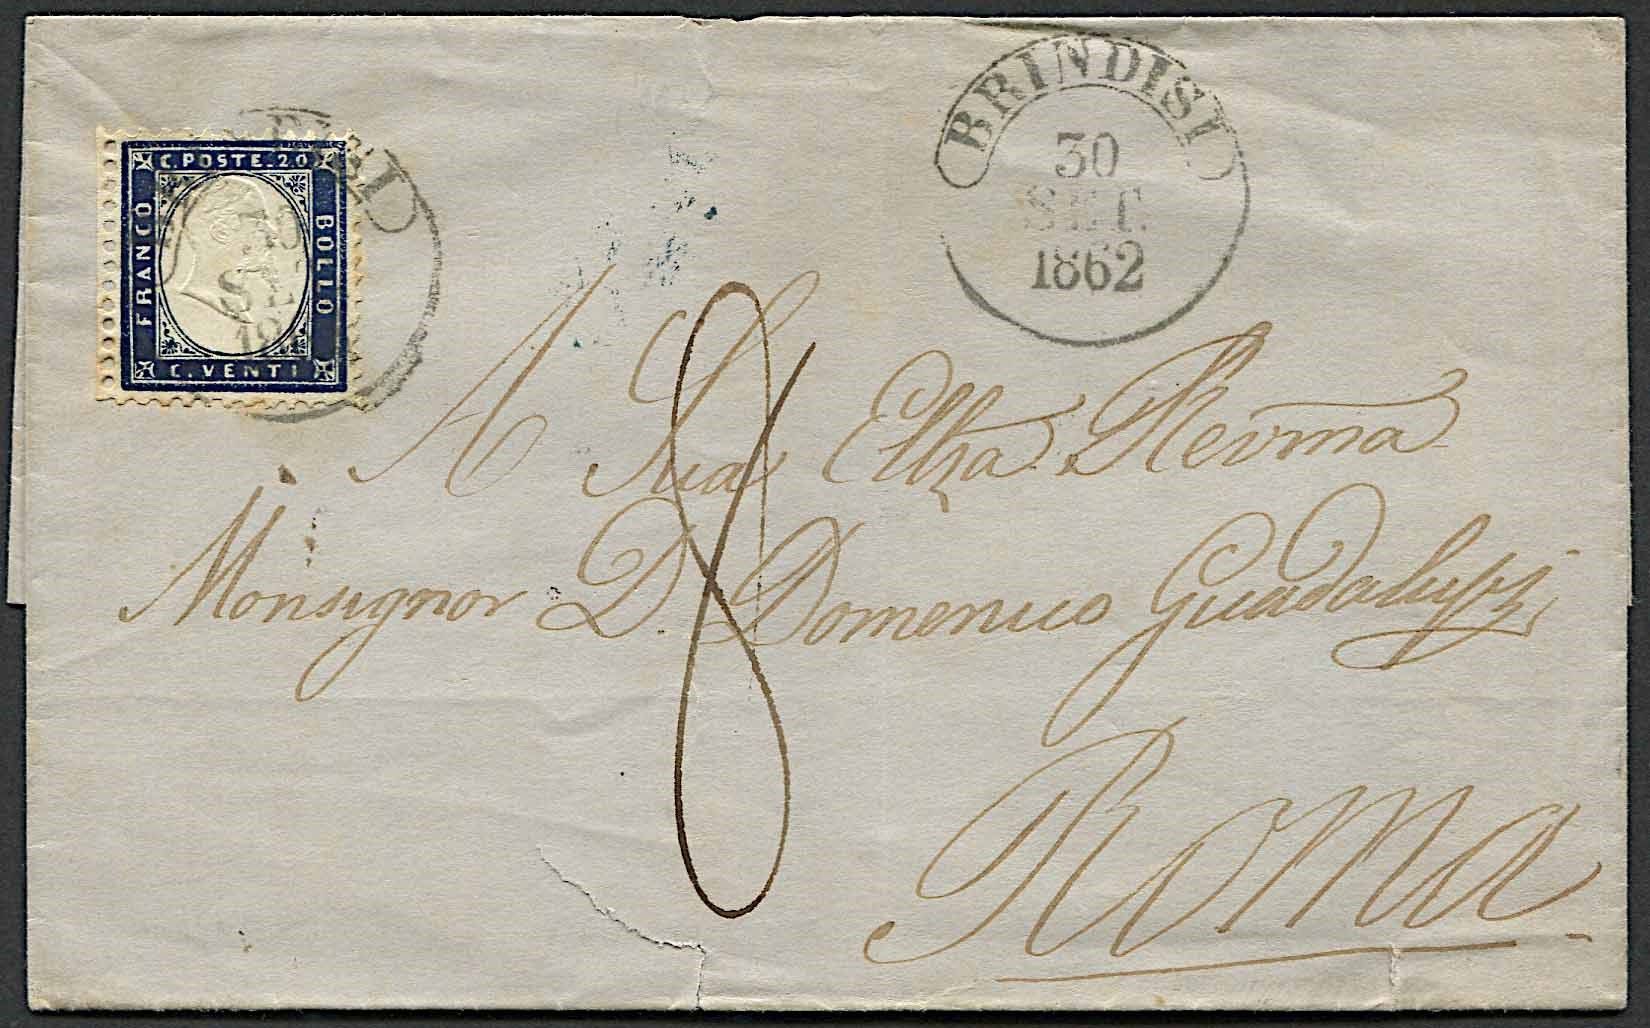 C. POSTE. 20
FRANCO
BOLLO
C. VENTI
BRINDISI
30
SET.
1862
8
A Sua Ellza Revma
Monsignor D. Domenico Guadalupi
Roma